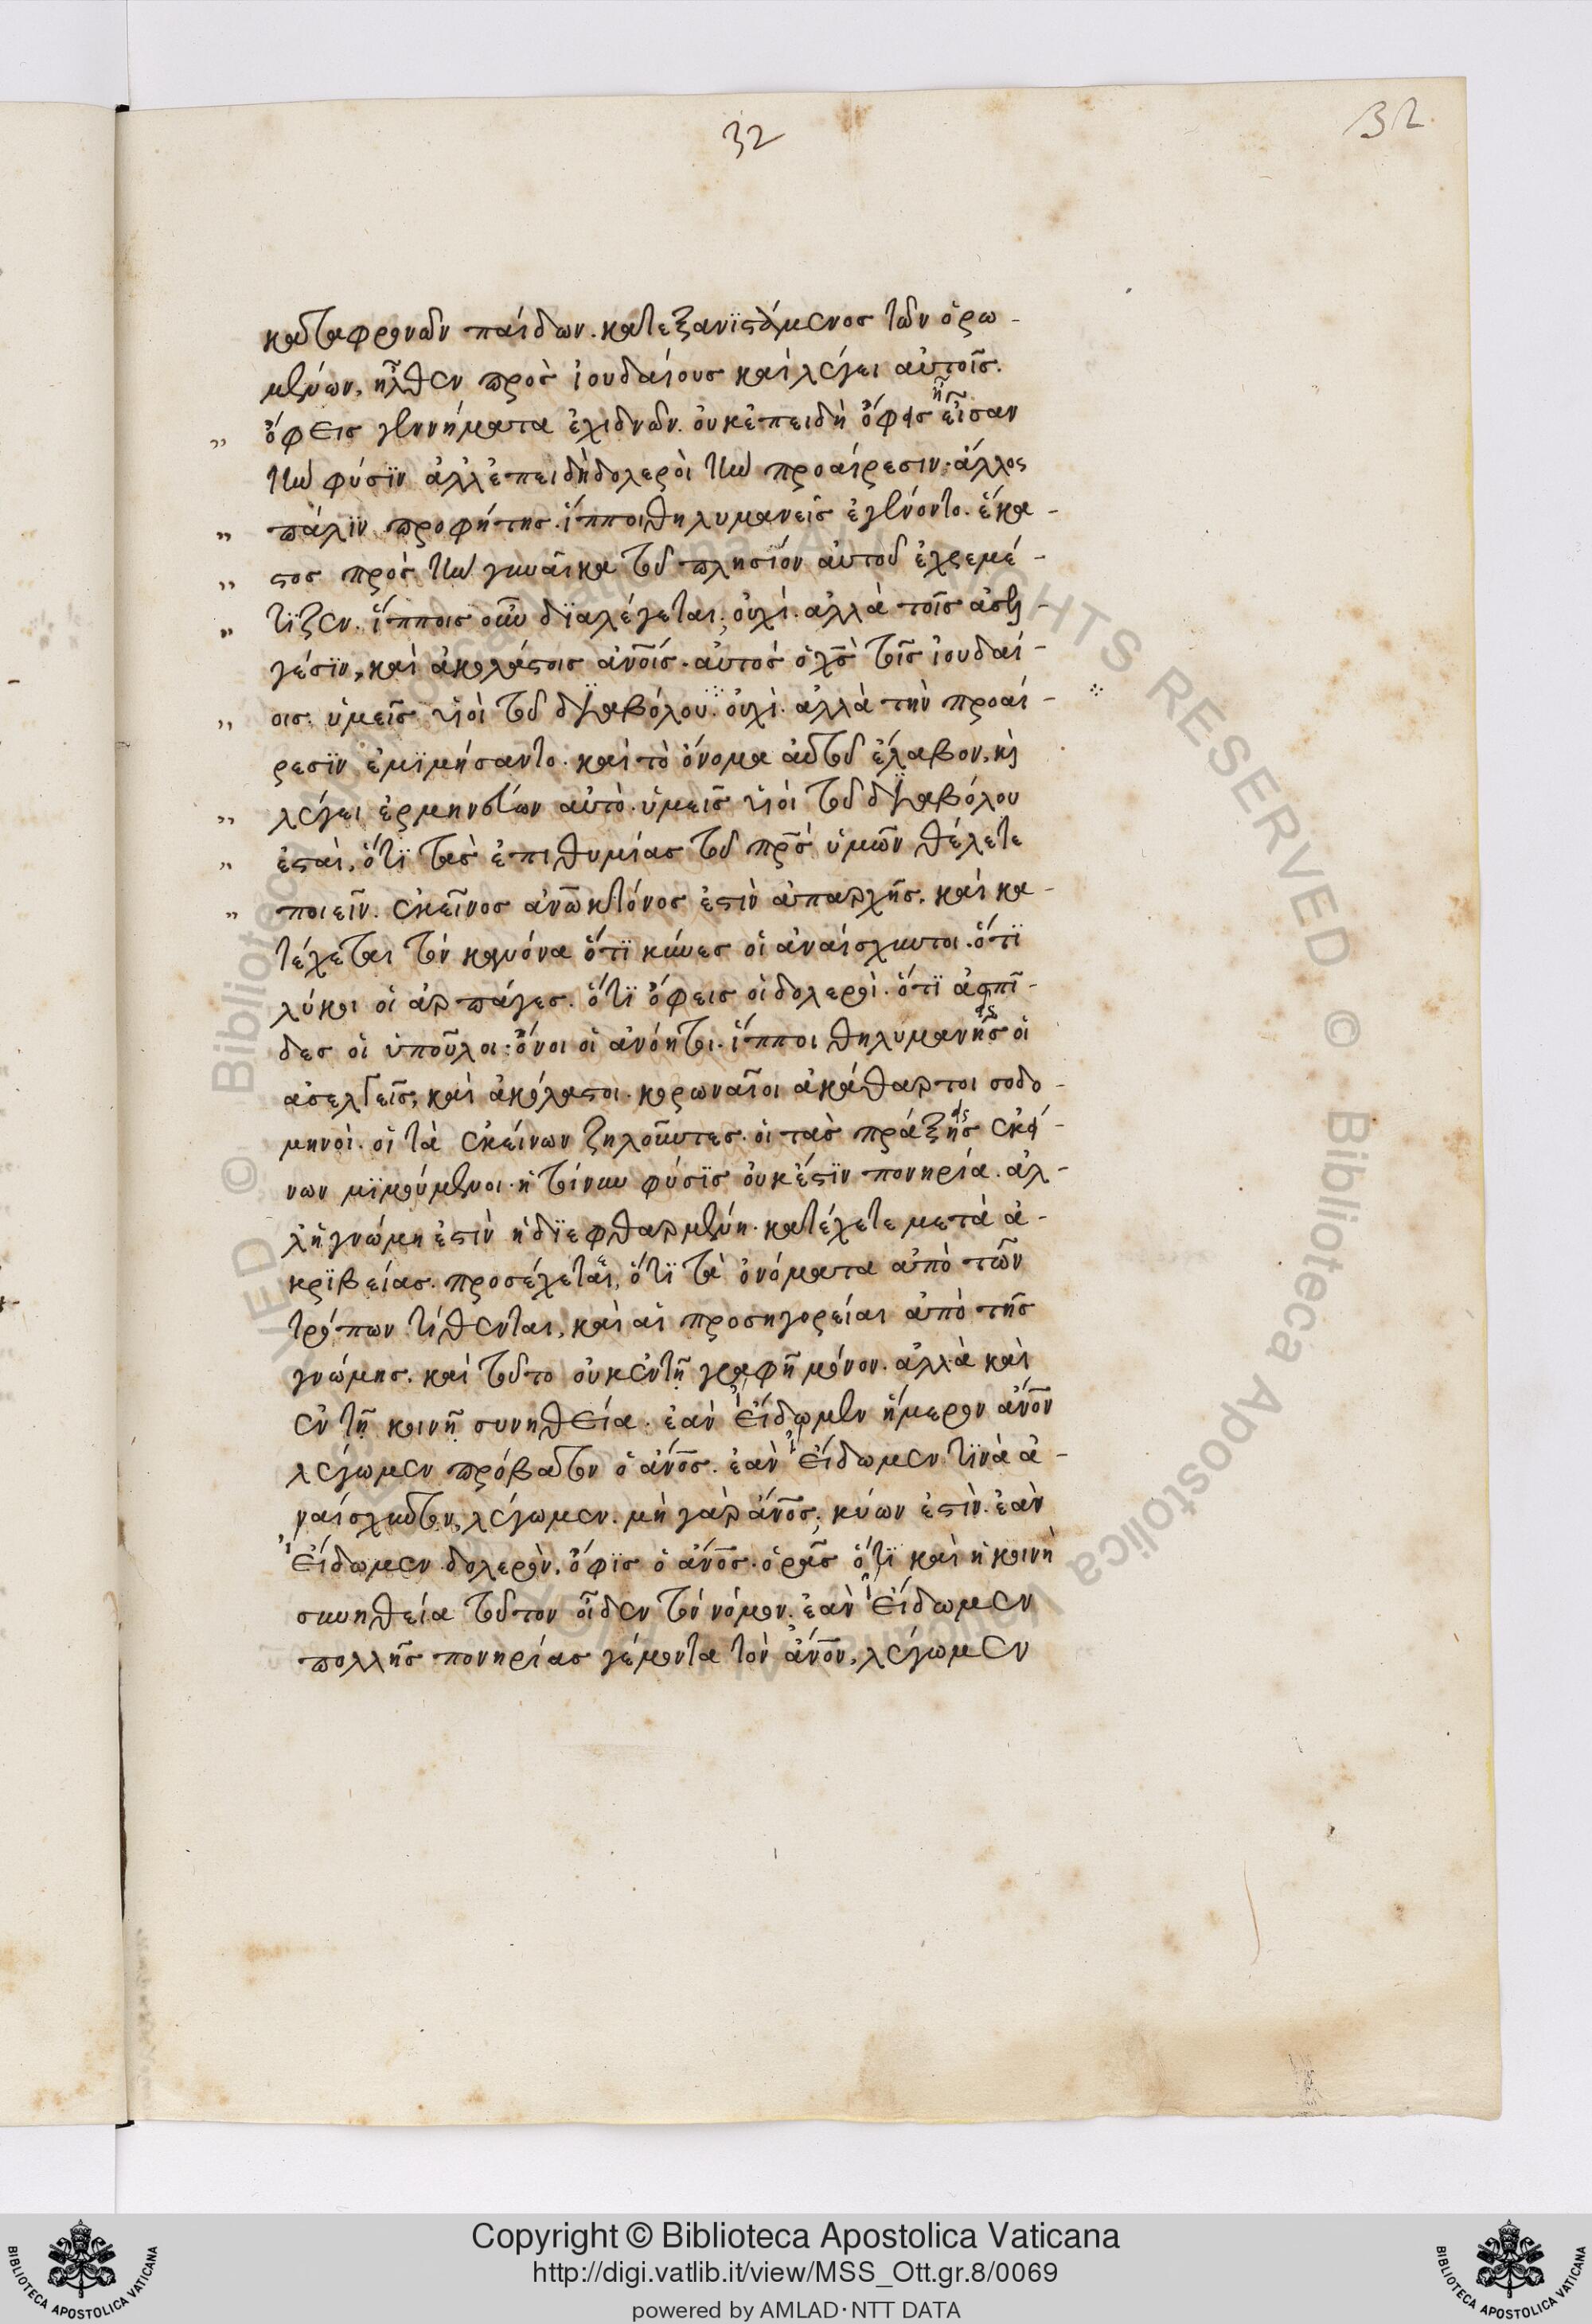 32
32
καταφρονῶν παίδων. κατεξανϊστάμενος τῶν ὁρω-
μένων, ἦλθεν πρὸς ἰουδαίους καὶ λέγει αὐτοῖς.
ὄφεις γεννήματα ἐχιδνῶν. οὐκ ἐπειδὴ ὄφεις εἶσαν
τὴν φύσϊν ἀλλ' ἐπειδὴ δολεροὶ τὴν προαίρεσιν. ἄλλος
πάλϊν προφήτης. ἵπποι θηλυμανεῖς ἐγένοντο. ἕκα-
στος πρὸς τὴν γυναῖκα τοῦ πλησίον αὐτοῦ ἐχρεμέ-
τϊζεν. ἵπποις οὖν δϊαλέγεται; οὐχί. ἀλλὰ τοῖς ἀσελ-
γέσϊν, καὶ ἀκολάστοις ἀνοῖς. αὐτὸς ὁ χς τοῖς ἰουδαί-
οις. ὑμεῖς υἱοὶ τοῦ δϊαβόλου. οὐχί. ἀλλὰ τὴν προαί-
ρεσϊν ἐμϊμήσαντο. καὶ τὸ ὄνομα αὐτοῦ ἔλαβον, καὶ
λέγει ἑρμηνεύων αὐτὸ. ὑμεῖς υἱοὶ τοῦ δϊαβόλου
ἐσταὶ, ὅτϊ τὰς ἐπιθυμίας τοῦ πρς ὑμῶν θέλετε
ποιεῖν. ἐκεῖνος ἀνωκτόνος ἐστὶν ἀπαρχῆς. καὶ κα-
τέχεται τὸν κανόνα ὅτϊ κύνες οἱ ἀναίσχυντοι. ὅτϊ
λύκοι οἱ ἅρπάγες. ὅτϊ ὄφεις οἱ δολεροί. ὅτϊ ἀσπῖ-
δες οἱ ὑποῦλοι. ὄνοι οἱ ἀνόητοι. ἵπποι θηλυμανῆς οἱ
ἀσελγεῖς, καὶ ἀκόλαστοι. κορωναῖοι ἀκάθαρτοι σοδο-
μηνοὶ. οἱ τὰ ἐκείνων ζηλοῦντες. οἱ τὰς πράξης ἐκεί-
νων μϊμούμενοι. ἡ τοίνυν φύσϊς οὐκ ἔστϊν πονηρία. ἀλ-
λ' ἡ γνώμη ἐστὶν ἡ δϊεφθαρμένη. κατέχετε μετὰ ἀ-
κρϊβείας. προσέχεται, ὅτϊ τὰ ὀνόματα ἀπὸ τῶν
τρόπων τίθενται, καὶ αἱ προσηγορείαι ἀπὸ τῆς
γνώμης. καὶ τοῦτο οὐκ ἐν τῇ γραφῇ μόνον. ἀλλὰ καὶ
ἐν τῇ κοινῇ συνηθεία. ἐὰν εἴδωμεν ἥμερον ἄνον
λέγωμεν πρόβατον ὁ ἄνος. ἐὰν εἴδωμεν τϊνὰ ἀ-
ναίσχυτον, λέγωμεν. μὴ γὰρ ἄνος; κύων ἐστὶν. ἐὰν
εἴδωμεν δολερὸν. ὄφϊς ὁ ἄνος. ὁρᾶς ὅτϊ καὶ ἡ κοινὴ
συνηθεία τοῦτον οἶδεν τὸν νόμον. ἐὰν εἴδωμεν
πολλῆς πονηρίας γέμοντα τὸν ἄνον, λέγωμεν
Copyright © Biblioteca Apostolica Vaticana
http://digi.vatlib.it/view/MSS_Ott.gr.8/0069
powered by AMLAD·NTT DATA